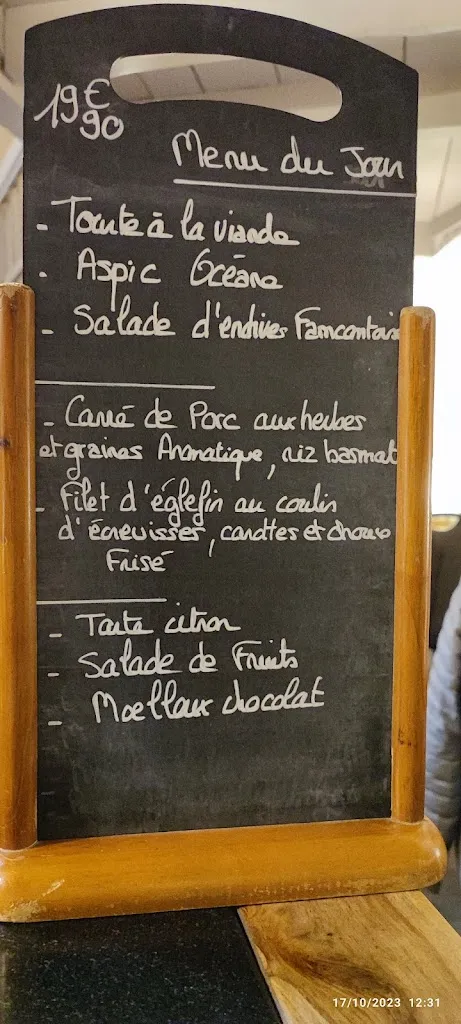 19€90
Menu du Jour
- Tourte à la viande
- Aspic Océane
- Salade d'endives Franccomtoise
- Carré de Porc aux herbes
et graines Aromatique, riz basmati
- Filet d'églefin au coulis
d'écrevisses, carottes et choux
Frisé
- Tarte citron
- Salade de Fruits
- Moelleux chocolat
17/10/2023 12:31